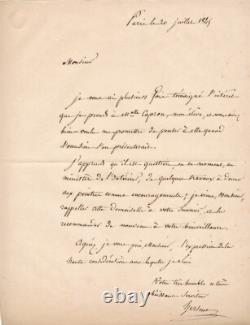 Paris le 20 juillet 1845
Monsieur
je vous ai plusieurs fois témoigné l'intérêt
que je prends à Mlle Capron, mon élève, et vous avez
bien voulu me promettre de penser à elle quand
l'occasion s'en présenterait.
J'apprends qu'il est question en ce moment, au
ministère de l'Intérieur, de quelques travaux à donner
aux peintres comme encouragements; je viens, Monsieur,
rappeler cette demoiselle à votre souvenir, et la
recommander de nouveau à votre bienveillance.
Agréez, je vous prie, Monsieur, l'expression de la
haute considération avec laquelle je suis
Votre très humble et très
obéissant Serviteur